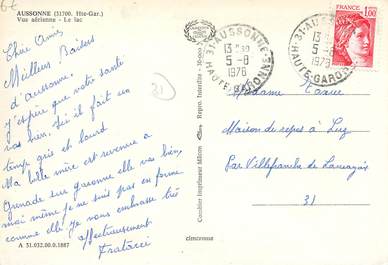 6€
AUSSONNE (31700. Hte-Gar.)
Vue aérienne - Le lac
Chère Amie,
Meilleurs Baisers
d'aussonne.
J'espère que votre santé
va bien. Ici il fait un
temps gris et lourd
Ma belle mère est revenue a
Grenade sur garonne elle va bien,
moi même je ne suis pas en forme
comme elle je vous embrasse très
affectueusement
A 31.032.00.0.1887
Combier Imprimeur Mâcon
cimcentenr
31
31-AUSSONNE
13 H30
5-8
1978
HAUTE-GARONNE
31-AUSSONNE
13 H30
5-8
1978
HAUTE-GARONNE
1,00
Madame
Maison de repos à Luz
Par Villefranche de Lauragais
31